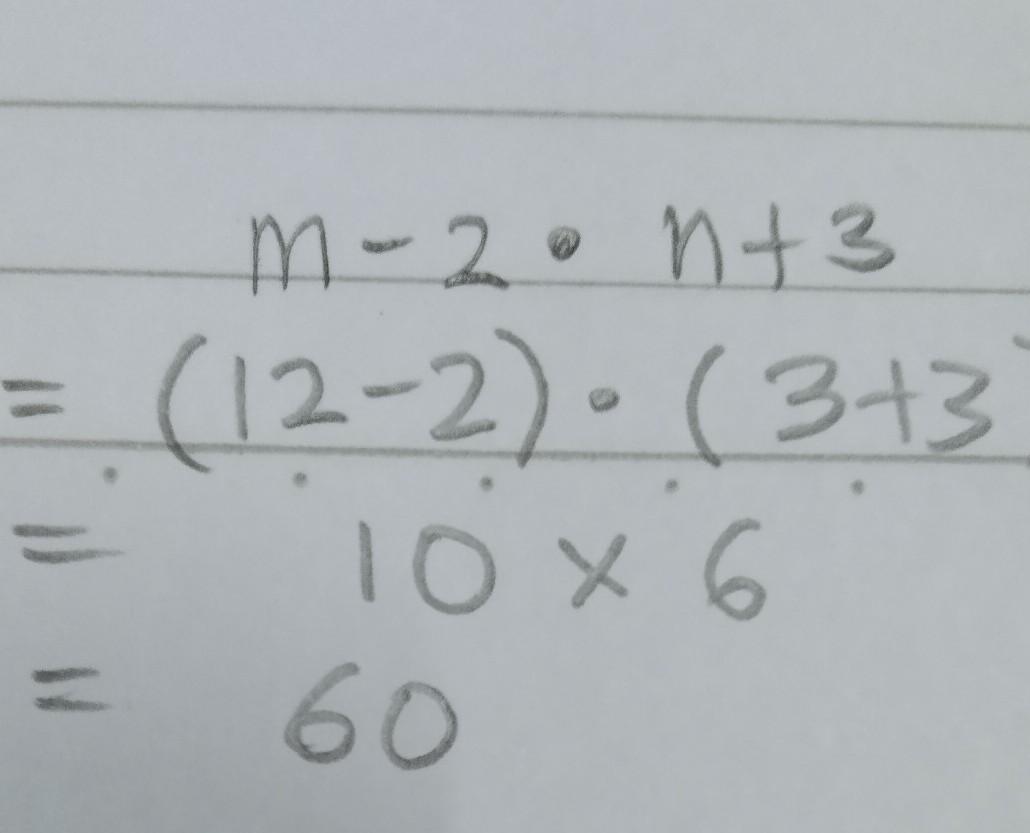 m - 2 • n + 3
= (12 - 2) • (3 + 3)
= 10 × 6
= 60